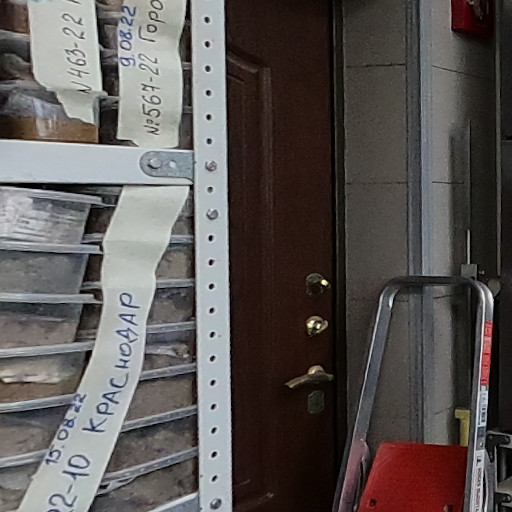 N463-22
9.08.22
№567-22 Горо
15.08.22
22-10 КРАСНОДАР